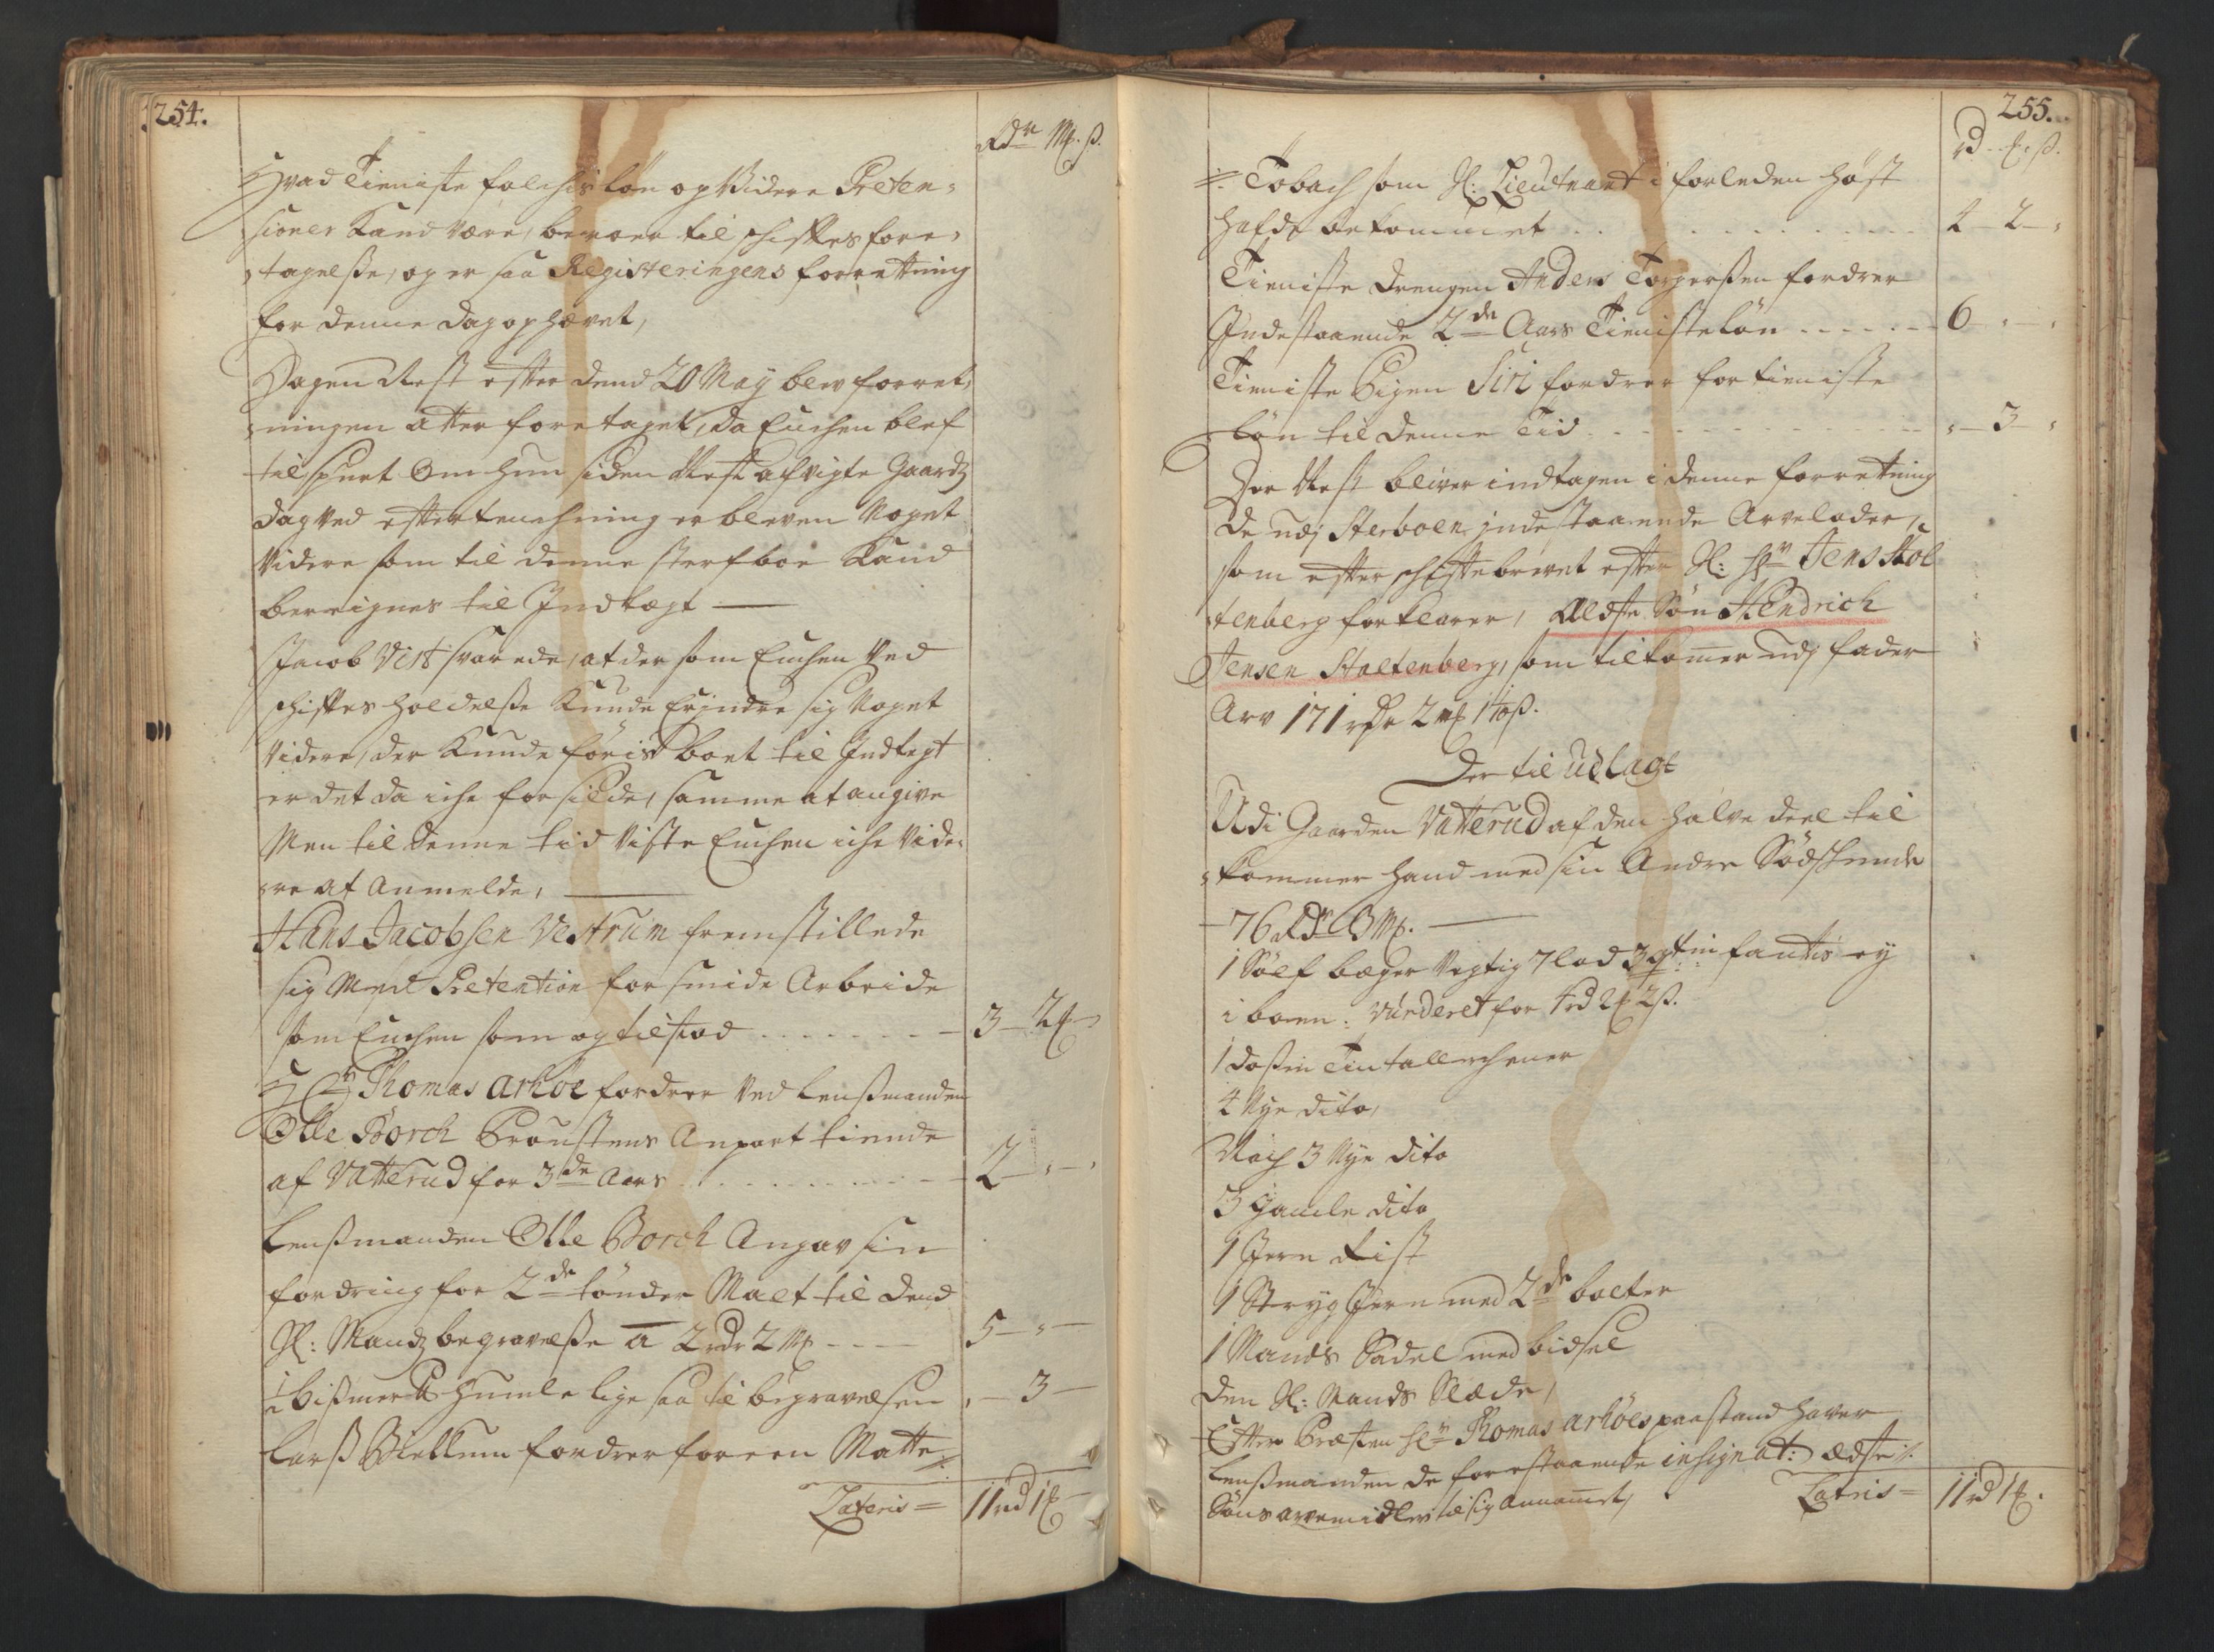 254.
Rdr Mk. ß.
Hvad Tieniste folchis løn og Videre Preten-
sioner kand være, beroer til schiftes fore-
tagelße, og er saa Registeringens forretning
for denne dag ophævet,
Dagen Nest efter dend 20 Maÿ blev forret-
ningen atter foretaget, da Enchen blef
tilspurt Om hun siden Nest afvigte Gaards
dag ved eftertenchning er bleven Noget
Videre som til denne sterfboe kand
bereignes til Indtægt —
Jacob Vist svarede, at der som Enchen Ved
schiftes holdelße kunde Erindre sig Noget
Videre, der kunde føris boet til Indtegt
er det da iche for silde, samme at angive
Men til denne tid Viste Enchen iche Vide-
re at Anmelde, —
Hans Jacobsen Vestrum fremstillede
sig Med Pretention for smide Arbeide
som Enchen som og tilstod - - - 3 - 2 -
Hr Thomas Arhoe fordrer Ved Lensmanden
Olle Borch Proustens Anpart tiende
af Vatterud for 3de Aar - - - 2 - „ - „
Lensmanden Olle Borch Angav sin
fordring for 2de tønder Malt til dend
Sl: Mands begravelße a 2 rdr 2 Mk - - - 5 - „ -
1 bißmer℔ Humle lige saa til begravelsen „ - 3 -
Lars Biellum fordrer for een Matte
Lateris = 11 rd 1 -
255.
rd. . ß.
Tobach som Sl: Lieutnant i forleden høst
hafde bekommet - - - 2 - „
Tieniste drengen Anders Torgerßen fordrer
Indestaaende 2de Aars Tieniste løn - - - 6 „ „
Tieniste Pigen Siri fordrer for tieniste
løn til denne Tid - - - „ - 3 - „
Der Nest bliver indtagen i denne forretning
de udj Sterboen indestaaende Arvelader,
som efter schiftebrevet efter Sl: Hr Jens Stol-
tenberg forklarer, Ældste Søn Hendrich
Jensen Stoltenberg, som tilkommer udj fader
Arv 171 rdr 2 mk ß.
Der til udlagt
Udi Gaarden Vatterud af den halve deel til
kommer hand med sin Andre Sødskende
76 Rdr 3 Mk. —
1 Sølf beger Vegtig 7 lod 3 qt:in fantis ey
i boen: Vurderet for 4 rd 2 2 ß.
1 doßin Tintallerchener
4 Nye dito,
Noch 3 Nye dito
3 gamle dito
1 Jern Rist
1 Stryg Jern med 2de bolter
1 Mands Sadel med bidsel
den Sl: Mands Slæde,
Efter Præsten Hr Thomas Arhoes paastand haver
Lensmanden de forestaaende insignat: ædste
Søns arvemidler til sig annamet,
Latris = 11 rd 1 .